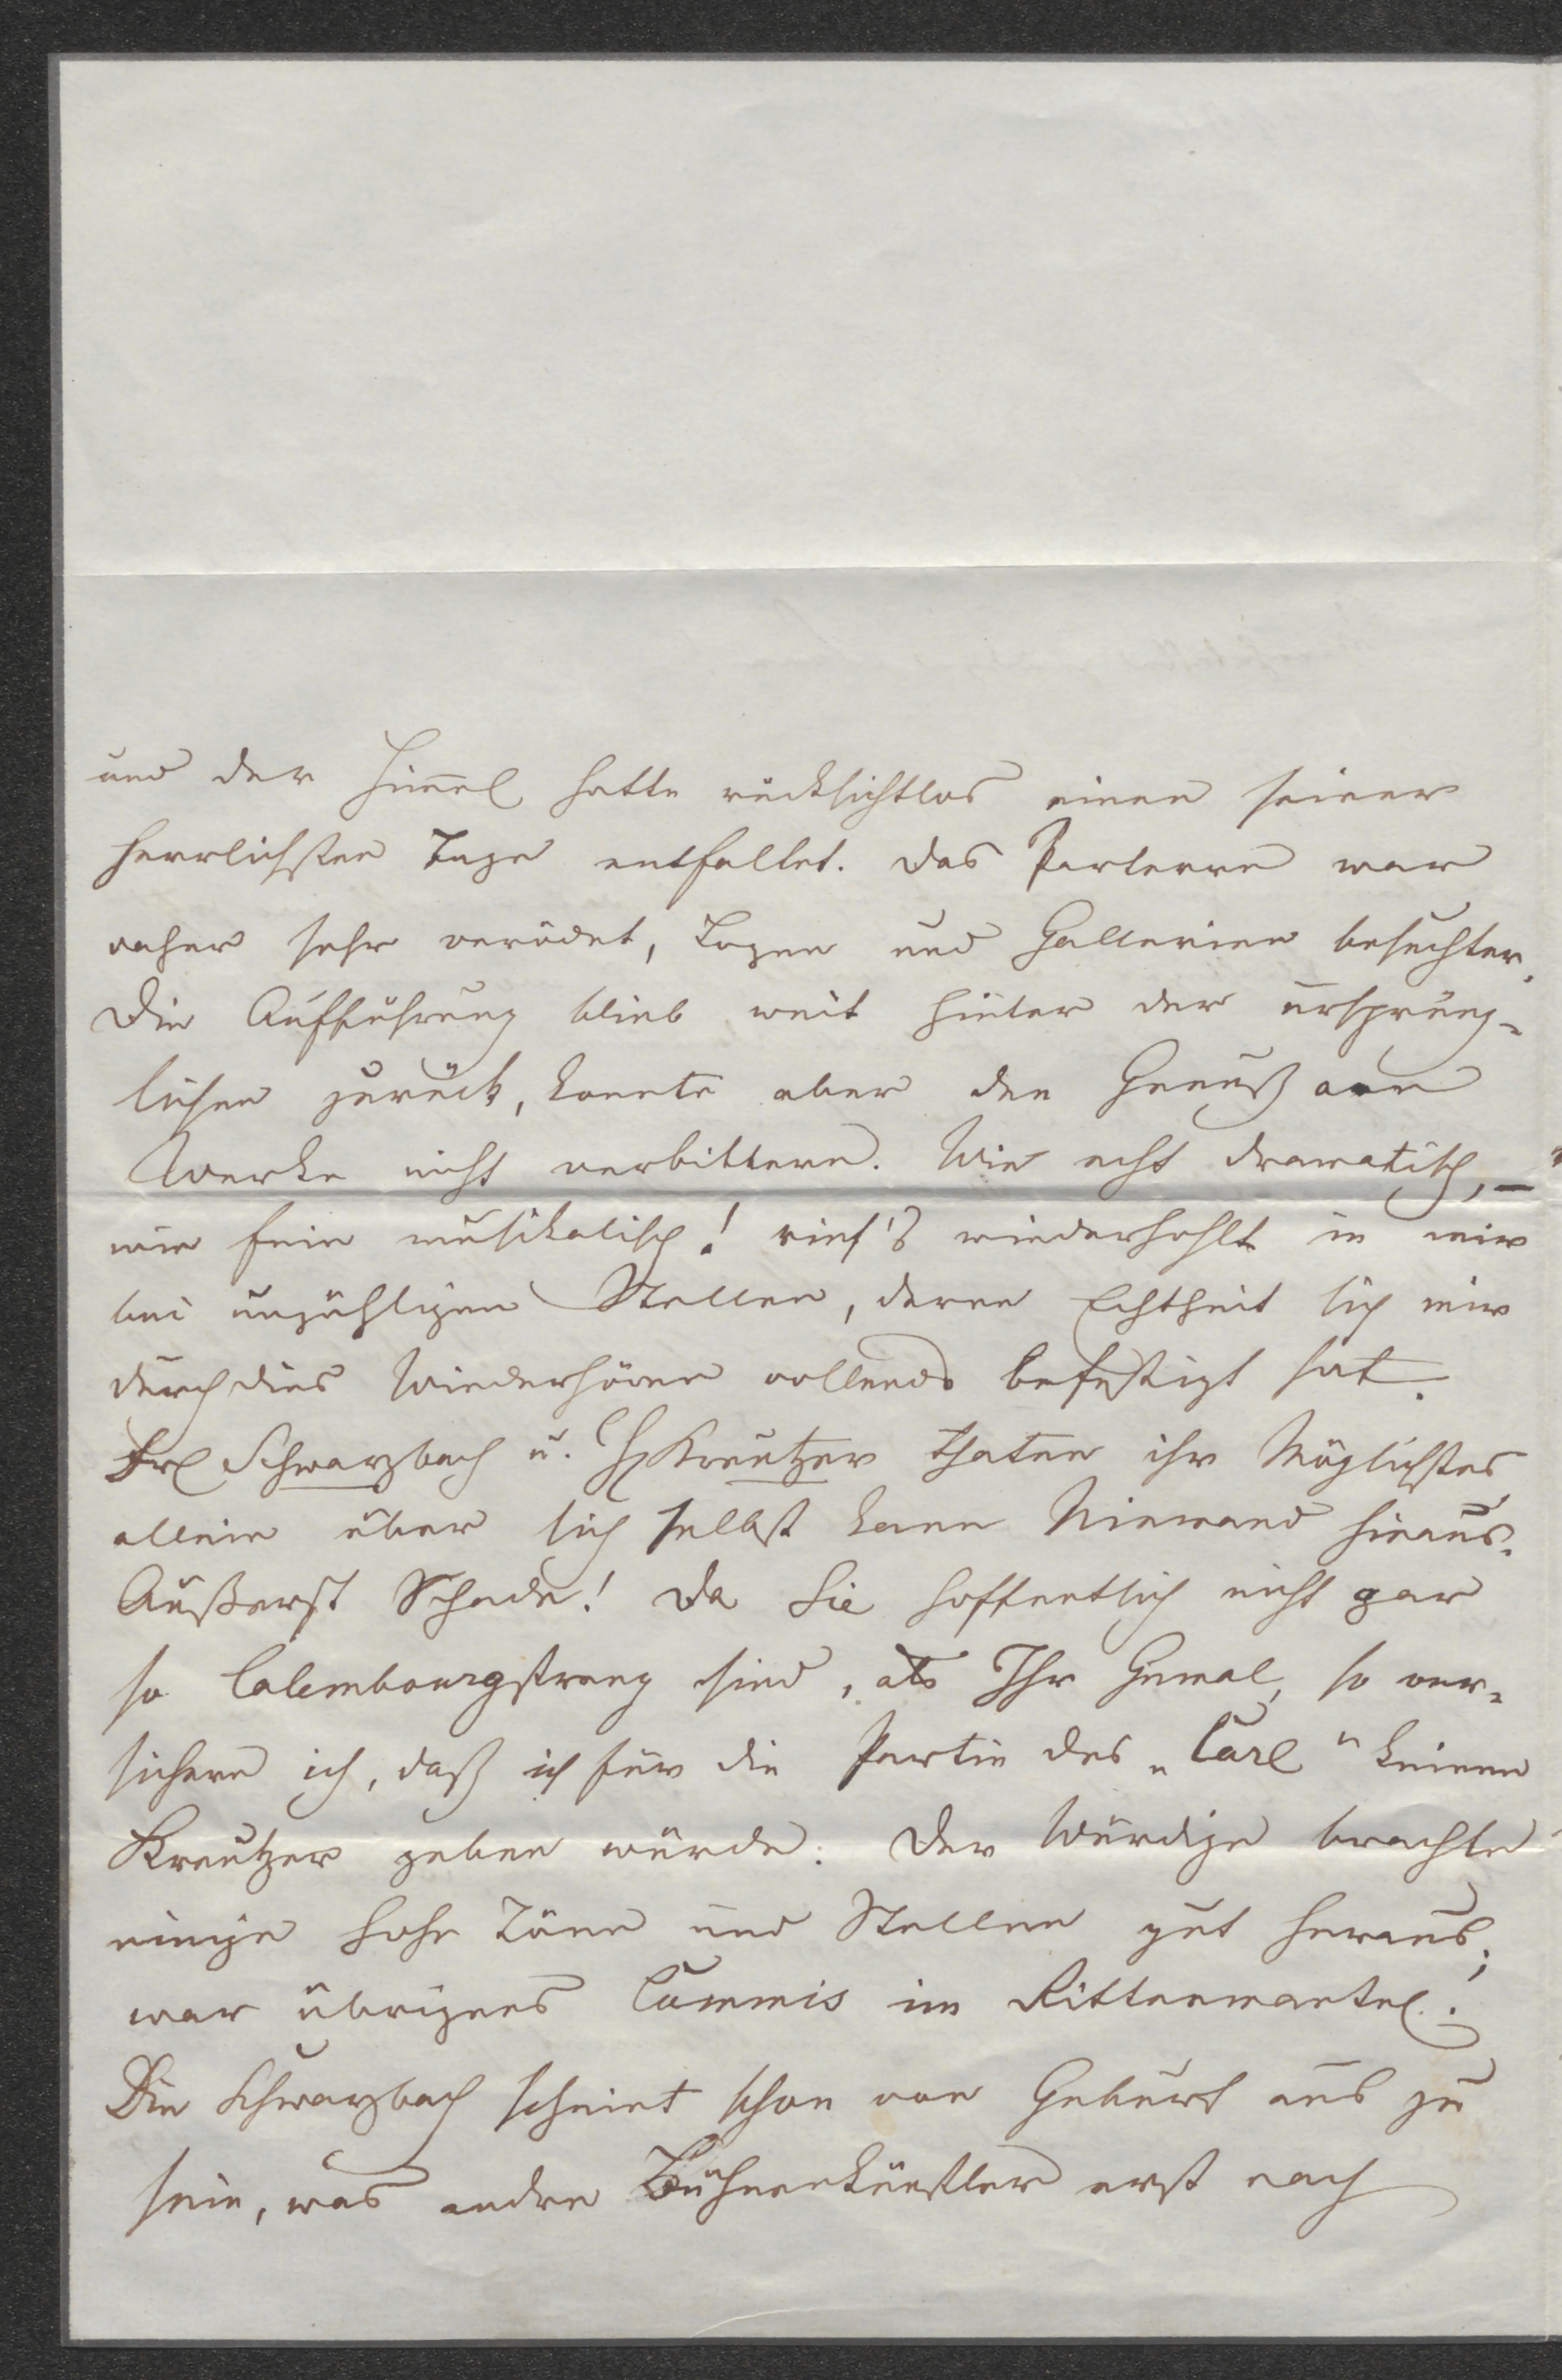 und der Him̅el hatte rücksichtlos einen seiner
herrlichsten Tage entfaltet. Das Parterre war
daher sehr verödet, Logen und Gallerien besuchter.
Die Aufführung blieb weit hinter der ursprüng-
lichen zurück, konnte aber den Genuß am
Werke nicht verbittern. Wie echt dramatisch, –
wie fein musikalisch! rief's wiederhohlt in mir
bei unzähligen Stellen, deren Echtheit sich mir
durch dies Wiederhören vollends befestigt hat.
Frl Schwarzbach u. H Kreutzer thaten ihr Möglichstes
allein über sich selbst kann Niemand hinaus.
Äußerst Schade! Da Sie hoffentlich nicht gar
so Calembourgstreng sind, als Ihr Gemal, so ver-
sichere ich, daß ich für die Partie des „Carl" keinen
Kreutzer geben würde. Der Würdige brachte
einige hohe Töne und Stellen gut heraus;
war übrigens Commis im Rittermantel.
Die Schwarzbach scheint schon von Geburt aus zu
sein, was andre Bühnenkünstler erst nach